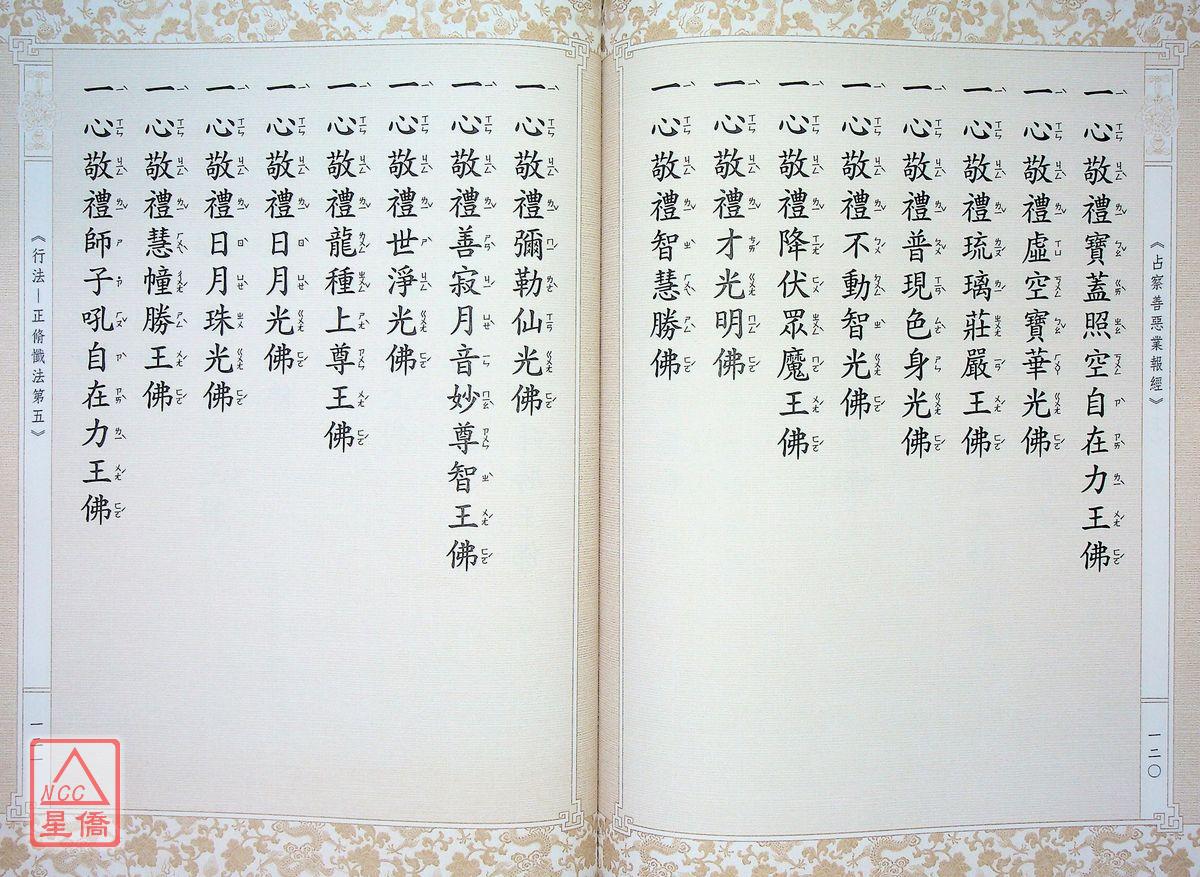 《占察善惡業報經》
一心敬禮寶蓋照空自在力王佛
一心敬禮虛空寶華光佛
一心敬禮琉璃莊嚴王佛
一心敬禮普現色身光佛
一心敬禮不動智光佛
一心敬禮降伏眾魔王佛
一心敬禮才光明佛
一心敬禮智慧勝佛
一二〇
一心敬禮彌勒仙光佛
一心敬禮善寂月音妙尊智王佛
一心敬禮世淨光佛
一心敬禮龍種上尊王佛
一心敬禮日月光佛
一心敬禮日月珠光佛
一心敬禮慧幢勝王佛
一心敬禮師子吼自在力王佛
《行法—正脩懺法第五》
一二一
NCC
星僑